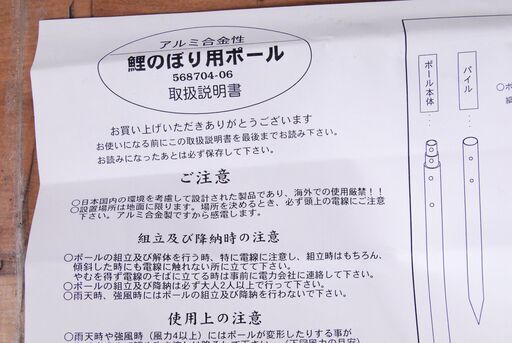 アルミ合金性
鯉のぼり用ポール
568704-06
取扱説明書
お買い上げいただきありがとうございます
お使いになる前にこの取扱説明書を最後までお読み下さい。
お読みになったあとは必ず保存して下さい。
ご注意
○日本国内の環境を考慮して設計された製品であり、海外での使用厳禁!!
○設置場所は地面に限ります。場所を決めるとき、必ず頭上の電線にご注意
下さい。アルミ合金製ですから感電します。
組立及び降納時の注意
○ポールの組立及び解体を行う時、特に電線に注意し、組立時はもちろん、
傾斜した時にも電線に触れない所に立てて下さい。
やむを得ず電線のそばに立てる時は事前に電力会社に連絡して下さい。
○ポールの組立及び降納は必ず大人2人以上で行って下さい。
○雨天時、強風時にはポールの組立及び降納を行わないで下さい。
使用上の注意
○雨天時や強風時(風力4以上)にはポールが変形したりする事が
ポール本体
パイル